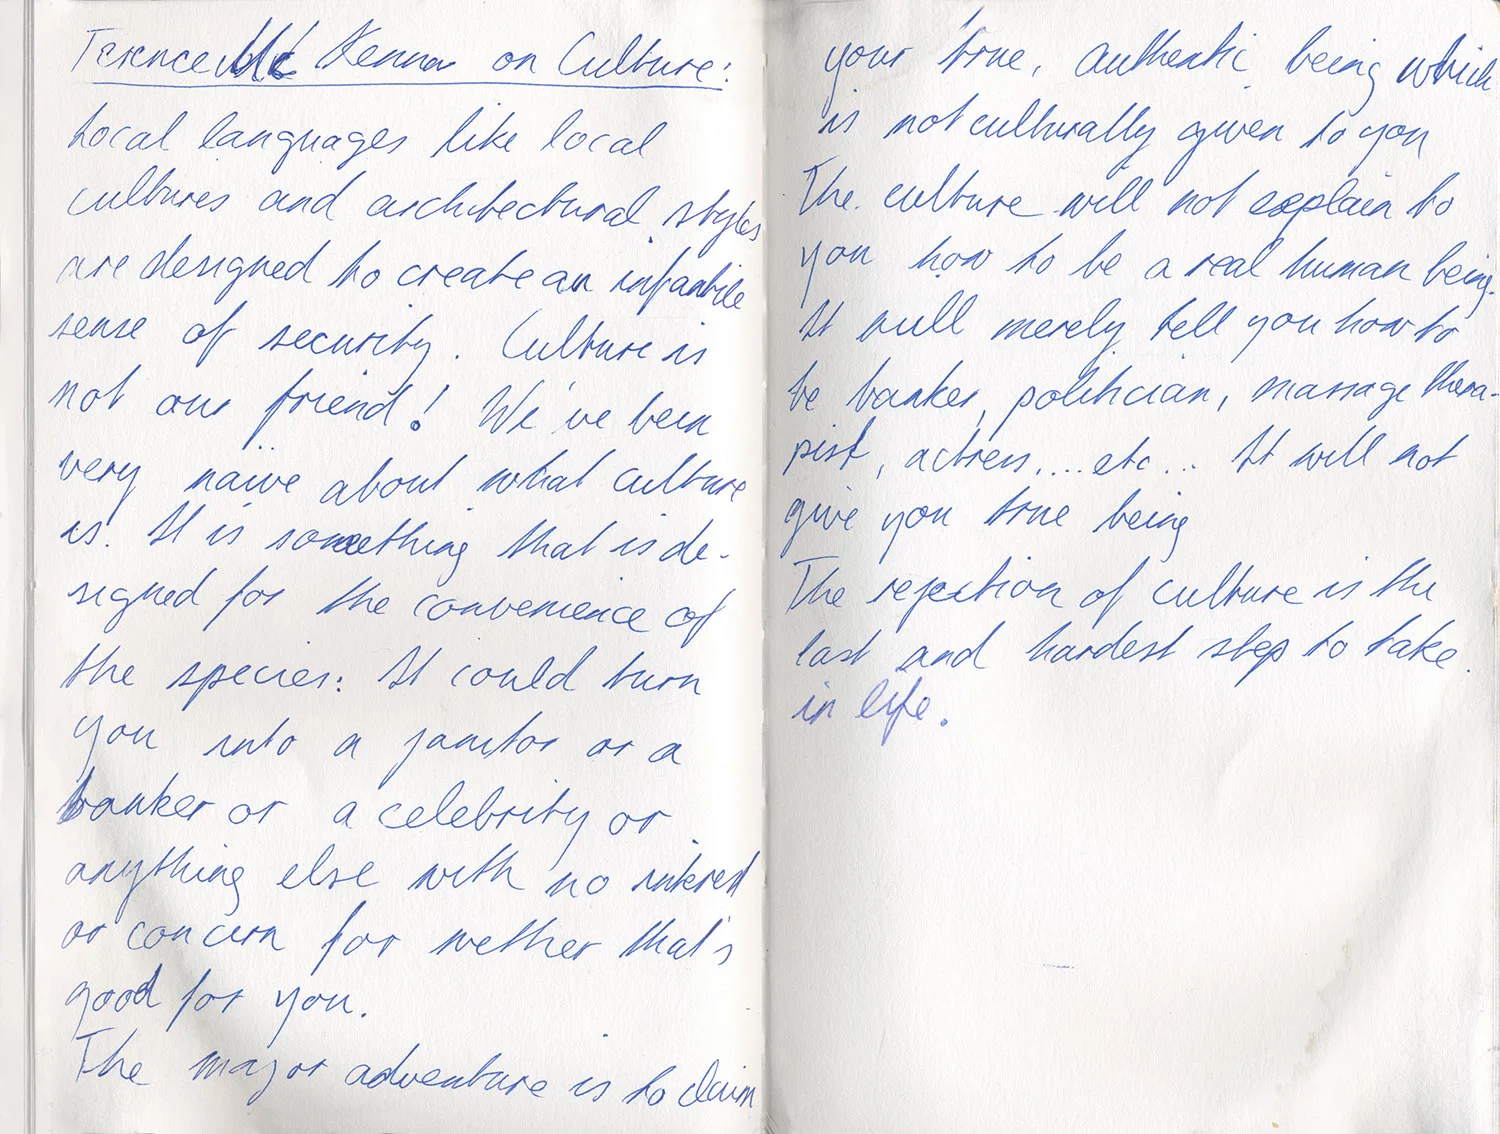 Terence Mc Kenna on Culture:
Local languages like local
cultures and architectural styles
are designed to create an infantile
sense of security. Culture is
not our friend! We've been
very naïve about what culture
is. It is something that is de-
signed for the convenience of
the species: It could turn
you into a janitor or a
banker or a celebrity or
anything else with no interest
or concern for wether that's
good for you.
The major adventure is to claim
your true, authentic being which
is not culturally given to you
The culture will not explain to
you how to be a real human being.
It will merely tell you how to
be banker, politician, massage thera-
pist, actress....etc... It will not
give you true being
The rejection of culture is the
last and hardest step to take.
in life.